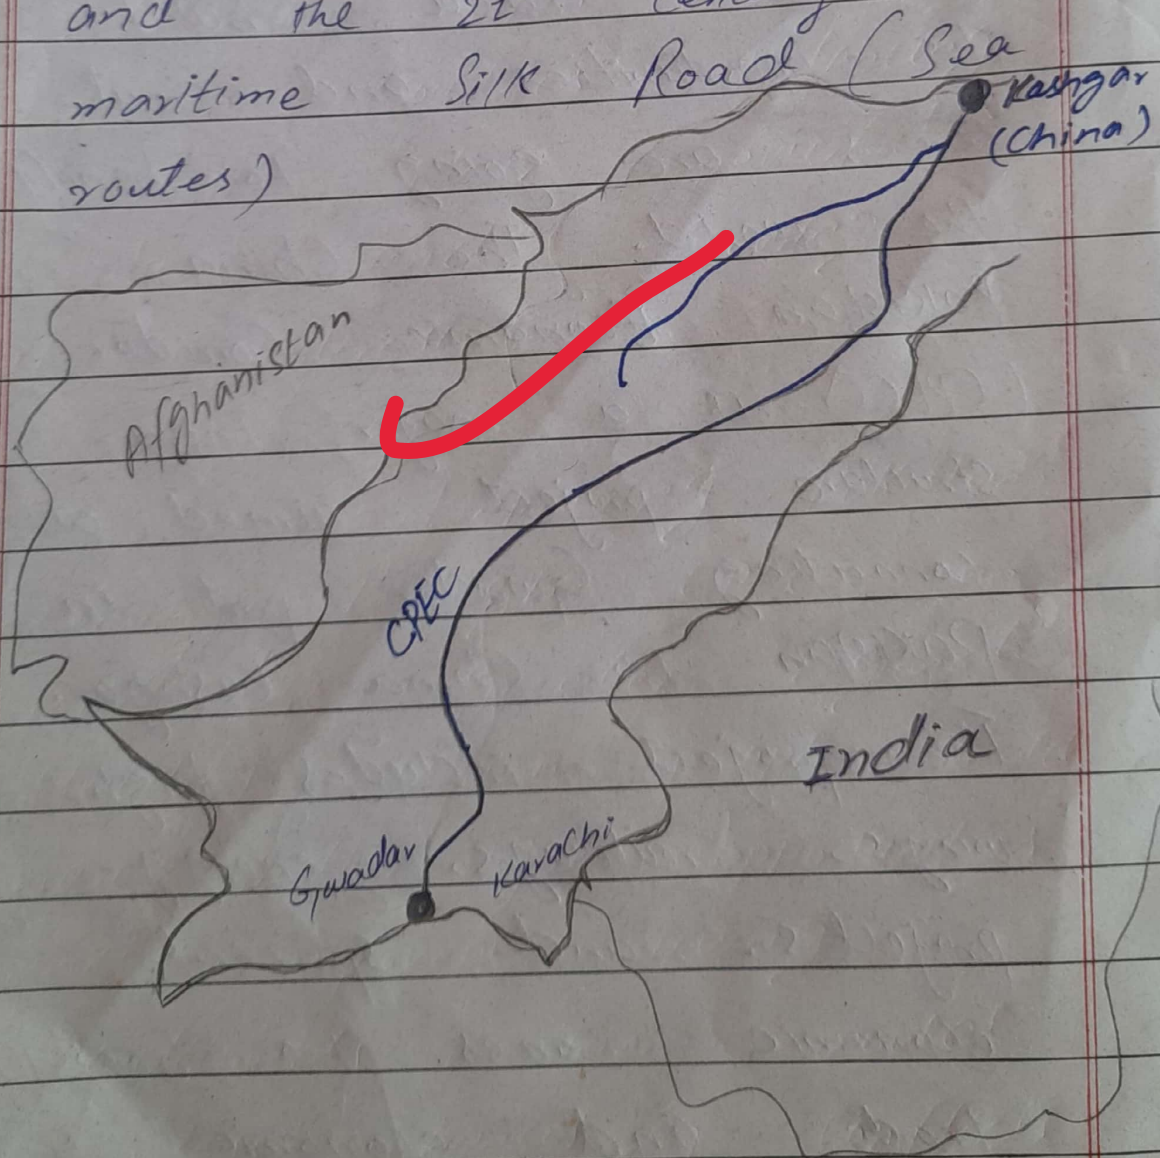 and the 21 
maritime Silk Road (Sea
routes)
Kashgar
(China)
Afghanistan
CPEC
India
Gwadar
Karachi